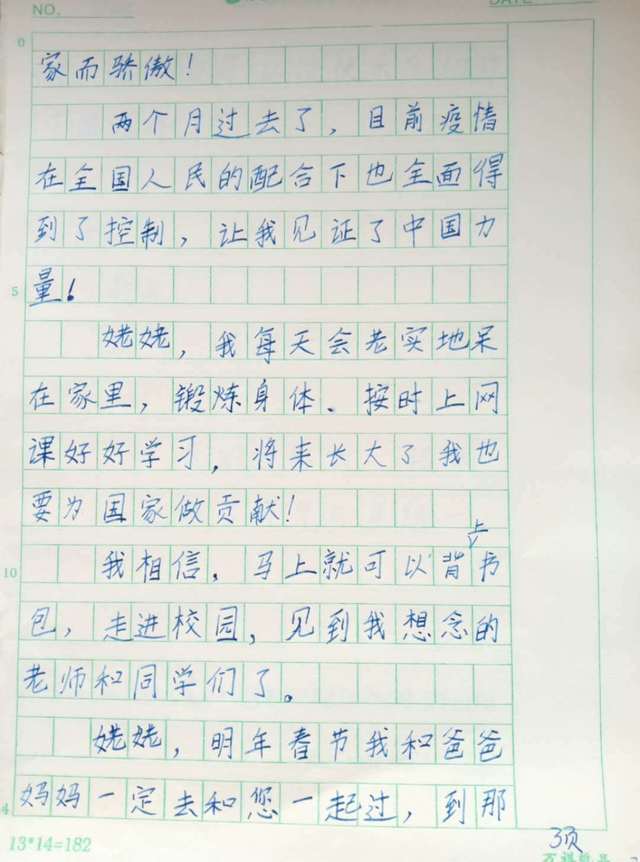 NO.
DATE
0
家而骄傲！
两个月过去了，目前疫情
在全国人民的配合下也全面得
到了控制，让我见证了中国力
5
量！
姥姥，我每天会老实地呆
在家里，锻炼身体、按时上网
课好好学习，将来长大了我也
要为国家做贡献！
上
10
我相信，马上就可以背书
包，走进校园，见到我想念的
老师和同学们了。
姥姥，明年春节我和爸爸
妈妈一定去和您一起过，到那
4
13*14=182
3页